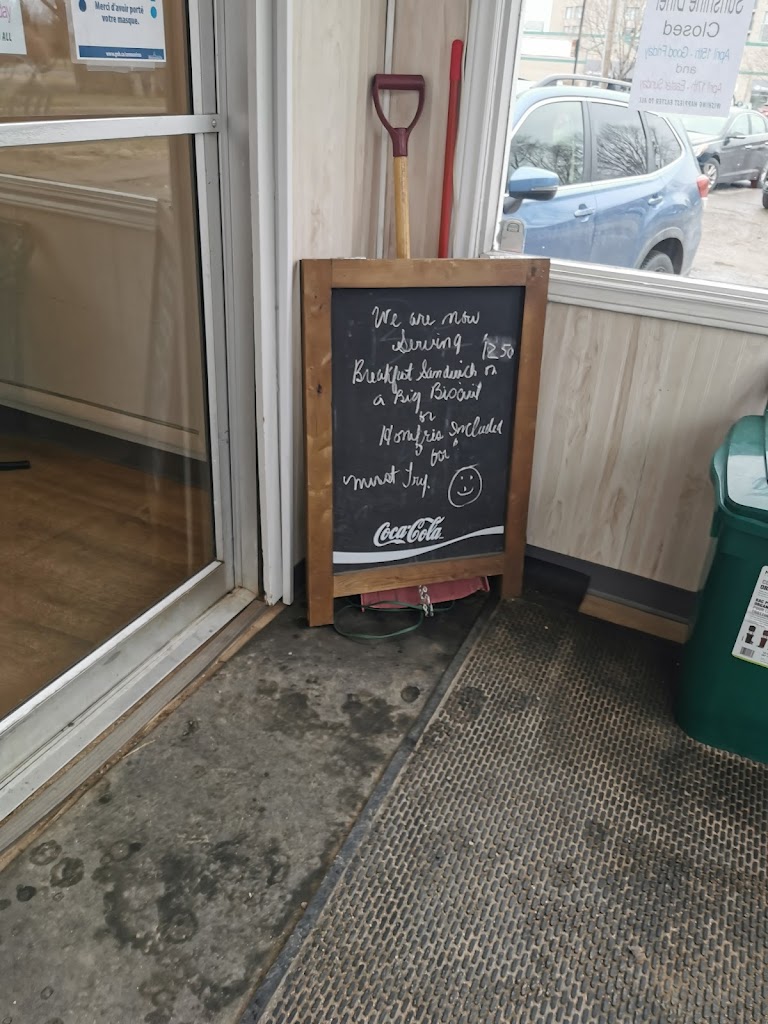 Merci d'avoir porté
votre masque.
ALL
Sunshine Diner
Closed
April 15th - Good Friday
and
April 17th - Easter Sunday
WISHING HAPPIEST EASTER TO ALL
We are now
Serving
12.50
Breakfast Sandwich on
a Big Biscuit
or
Homefries Included
for
must Try.
Coca-Cola